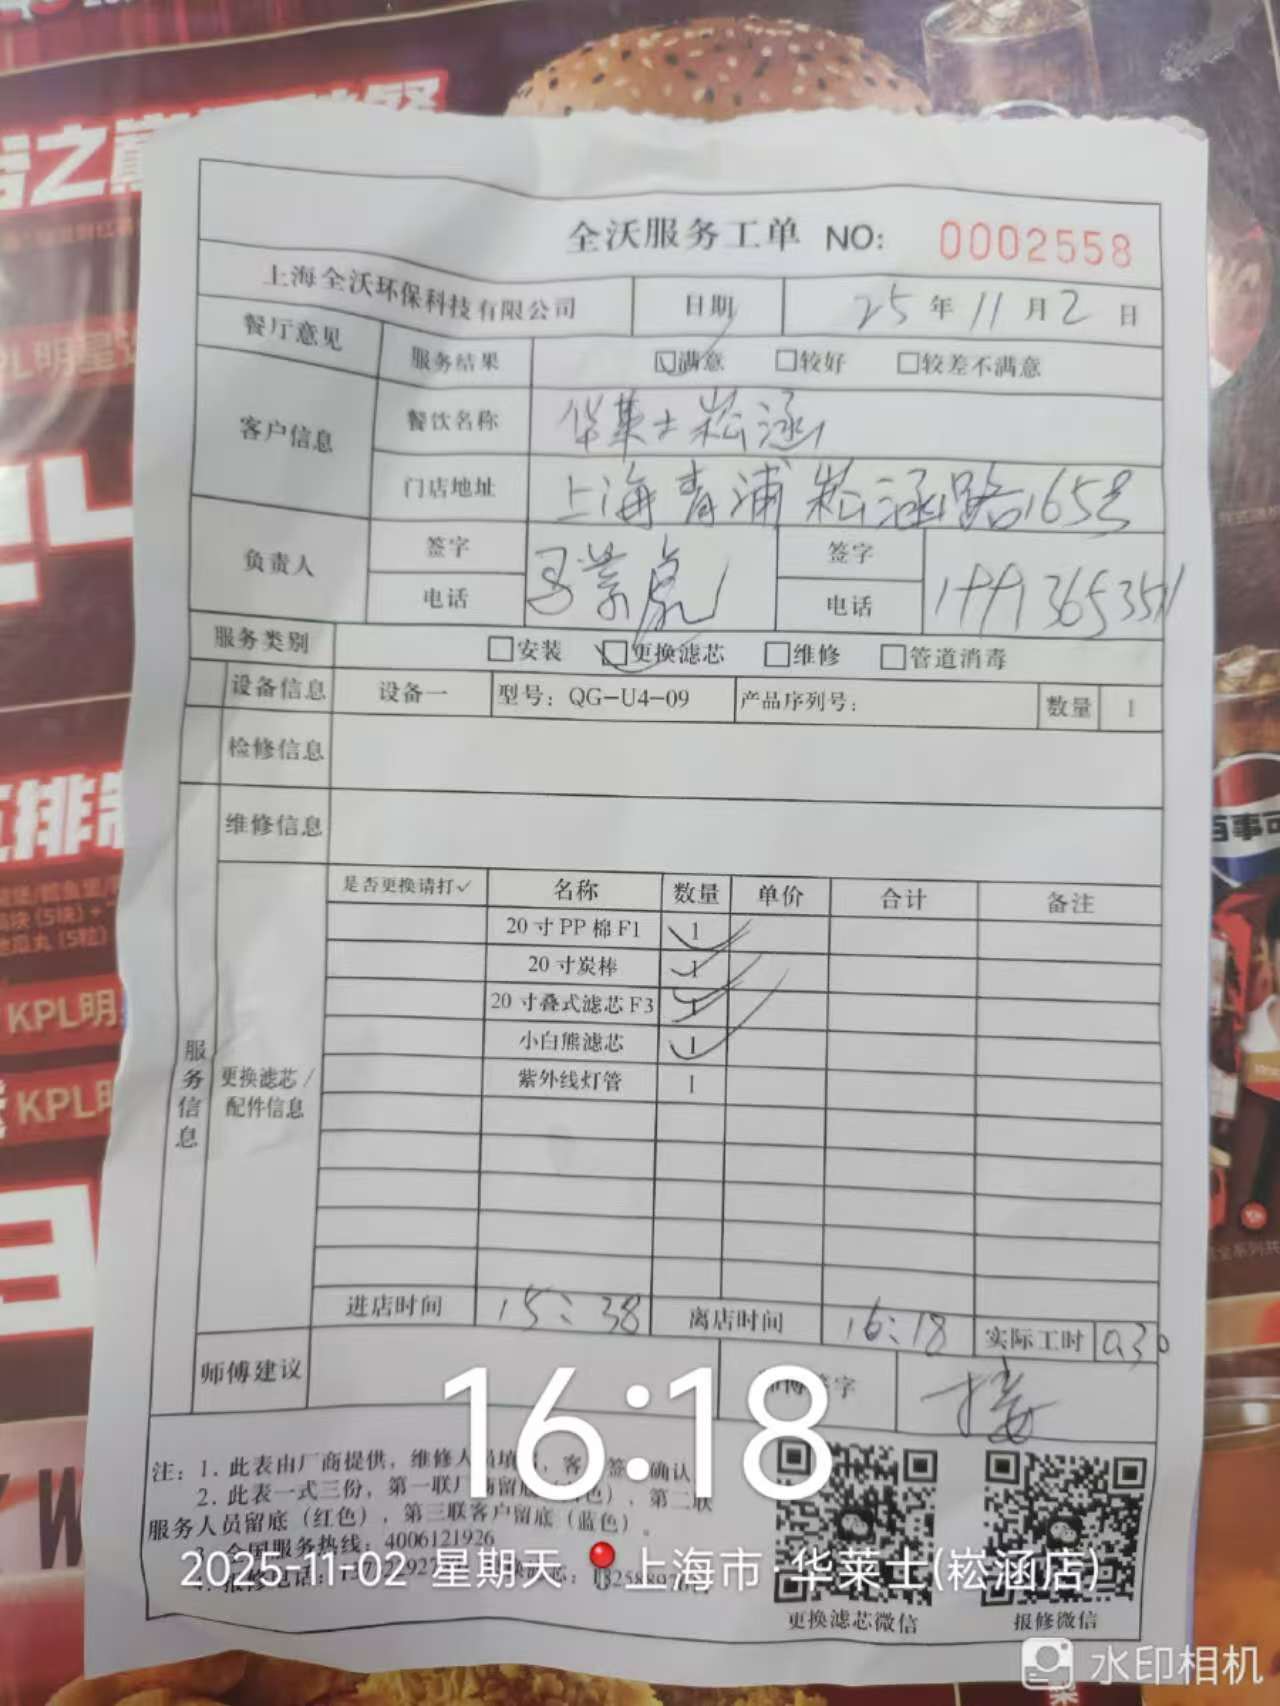 全沃服务工单 NO: 0002558
上海全沃环保科技有限公司 日期 25年11月2日
餐厅意见 服务结果 ☑满意 □较好 □较差不满意
客户信息 餐饮名称 华莱士崧涵
门店地址 上海青浦崧涵路165号
负责人 签字 签字
电话 电话
服务类别 □安装 ☑更换滤芯 □维修 □管道消毒
设备信息 设备一 型号：QG-U4-09 产品序列号： 数量 1
检修信息
维修信息
服务信息
更换滤芯/
配件信息
是否更换请打✓ 名称 数量 单价 合计 备注
20寸PP棉F1 1 ✓
20寸炭棒 1 ✓
20寸叠式滤芯F3 1 ✓
小白熊滤芯 1 ✓
紫外线灯管 1
进店时间 15:38 离店时间 16:18 实际工时
师傅建议 签字
16:18
注：1. 此表由厂商提供，维修人员填 客 签 确认
2. 此表一式三份，第一联厂商留底 色），第二联
服务人员留底（红色），第三联客户留底（蓝色）。
全国服务热线：4006121926
报修电话：
2025-11-02 星期天 上海市·华莱士(崧涵店)
更换滤芯微信 报修微信
水印相机
KPL明
KPL明